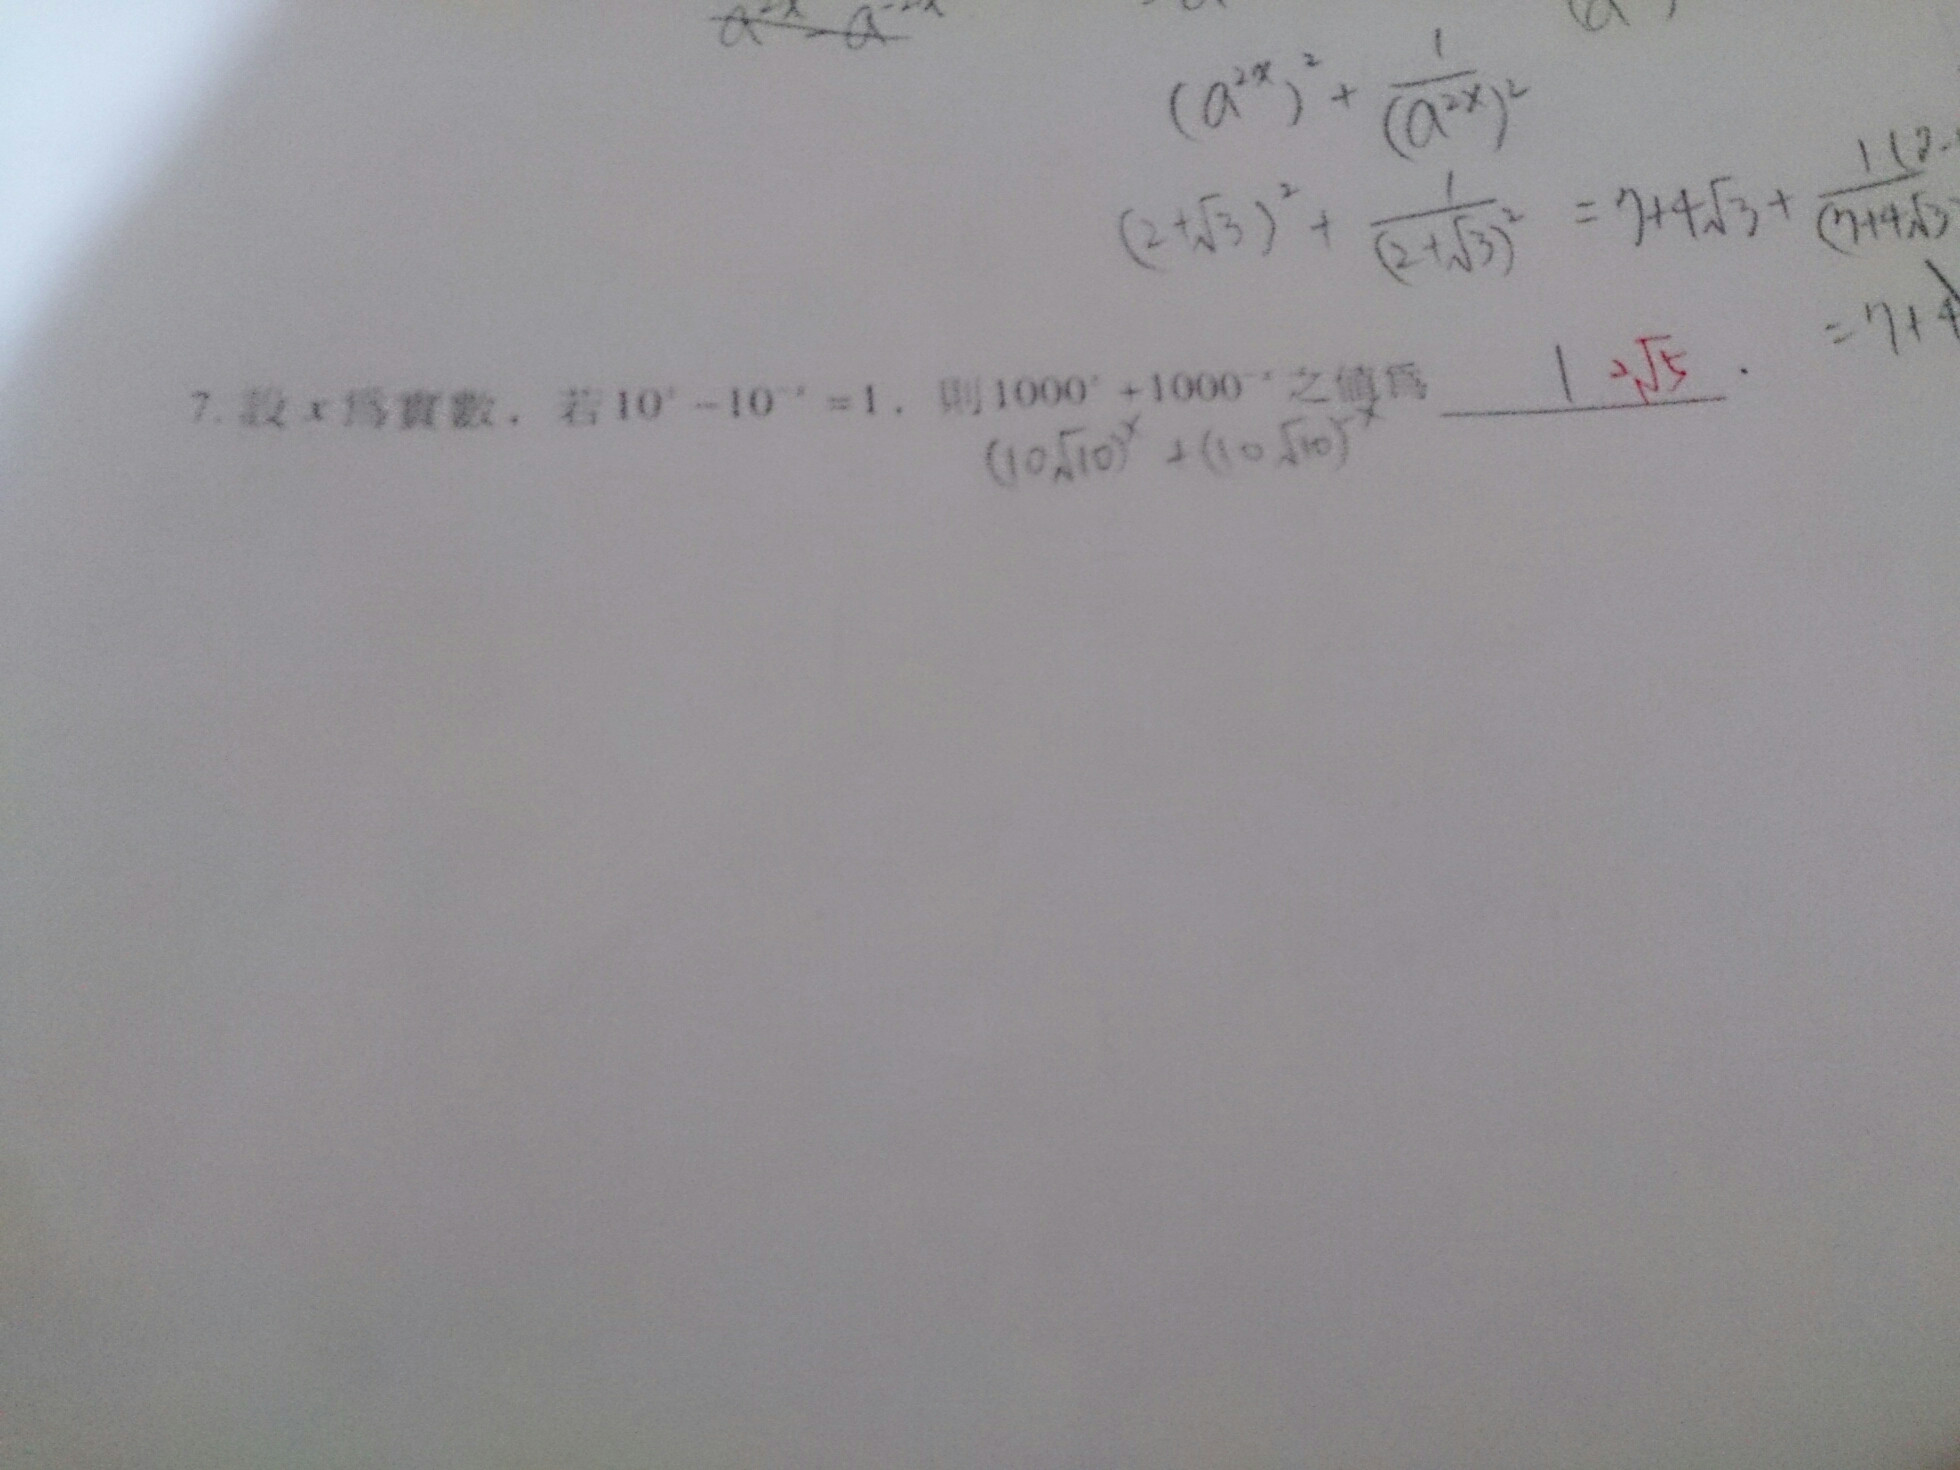 a²ˣ - a⁻²ˣ
(a²ˣ)² + 1/(a²ˣ)²
(2+√3)² + 1/(2+√3)² = 7+4√3 + 1(7-/(7+4√3)
= 7+4
7. 設 x 為實數，若 10ˣ - 10⁻ˣ = 1，則 1000ˣ + 1000⁻ˣ 之值為 1 2√5 .
(10√10)ˣ + (10√10)⁻ˣ